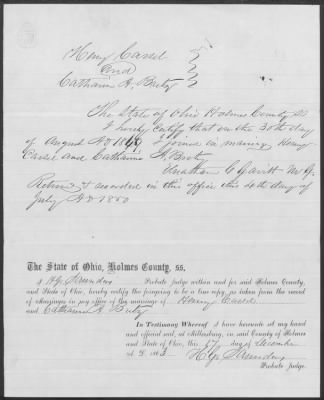 Henry Casel
and
Catharin A. Buty
The State of Ohio Holmes County SS
I hereby certify that on the 30th day
of August AD 1849 I joined in marriage Henry
Casel and Catharin A. Buty
Jonathan C Gavitt M. G.
Returned & recorded in this office this 20th day of
July AD 1850
The State of Ohio, Holmes County, ss.
I Probate Judge within and for said Holmes County,
and State of Ohio, hereby certify the foregoing to be a true copy, as taken from the record
of Marriages in my office of the marriage of Henry Casel
and Catharin A Buty
In Testimony Whereof I have hereunto set my hand
and official seal, at Millersburg, in said County of Holmes
and State of Ohio, this day of December
A. D. 1863.
Probate Judge.